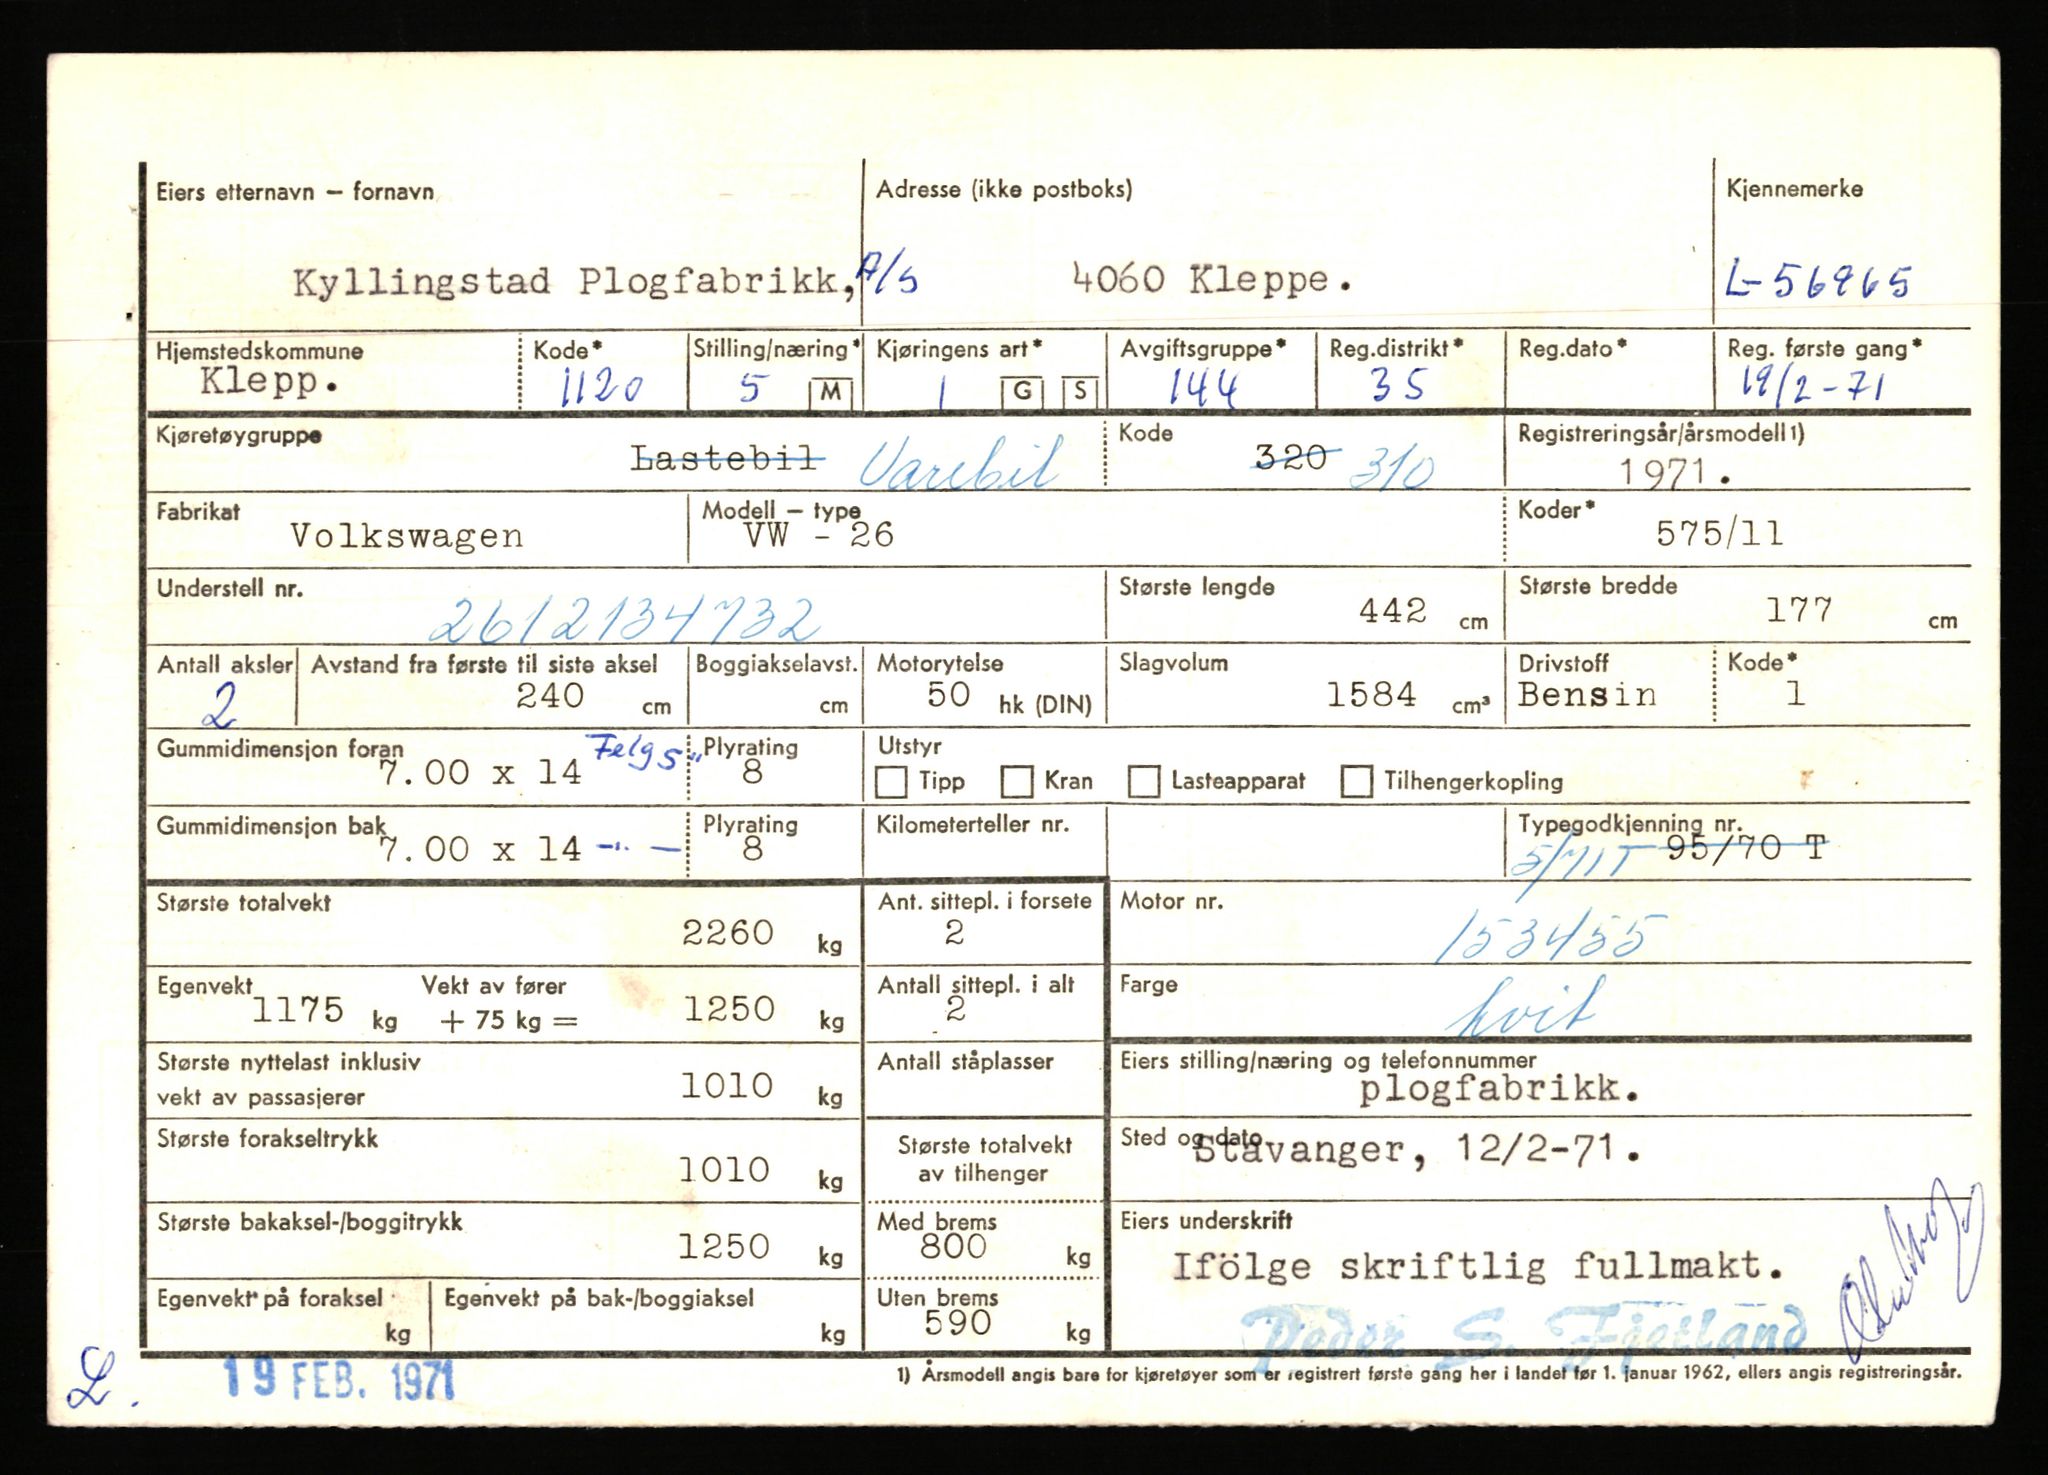 Eiers etternavn – fornavn
Adresse (ikke postboks)
Kjennemerke
Kyllingstad Plogfabrikk, A/S
4060 Kleppe.
L-56965
Hjemstedskommune
Kode*
Stilling/næring*
Kjøringens art*
Avgiftsgruppe*
Reg.distrikt*
Reg.dato*
Reg. første gang*
Klepp.
1120
5 M
1 G S
144
35
19/2-71
Kjøretøygruppe
Lastebil Varebil
Kode
320 310
Registreringsår/årsmodell 1)
1971.
Fabrikat
Volkswagen
Modell – type
VW - 26
Koder*
575/11
Understell nr.
2612134732
Største lengde
442 cm
Største bredde
177 cm
Antall aksler
2
Avstand fra første til siste aksel
240 cm
Boggiakselavst.
cm
Motorytelse
50 hk (DIN)
Slagvolum
1584 cm³
Drivstoff
Bensin
Kode*
1
Gummidimensjon foran
7.00 x 14 Felg 5"
Plyrating
8
Utstyr
Tipp Kran Lasteapparat Tilhengerkopling
Gummidimensjon bak
7.00 x 14 -"-
Plyrating
8
Kilometerteller nr.
Typegodkjenning nr.
5/71T 95/70 T
Største totalvekt
2260 kg
Ant. sittepl. i forsete
2
Motor nr.
153455
Egenvekt
1175 kg
Vekt av fører
+ 75 kg =
1250 kg
Antall sittepl. i alt
2
Farge
hvit
Største nyttelast inklusiv
vekt av passasjerer
1010 kg
Antall ståplasser
Eiers stilling/næring og telefonnummer
plogfabrikk.
Største forakseltrykk
1010 kg
Største totalvekt
av tilhenger
Sted og dato
Stavanger, 12/2-71.
Største bakaksel-/boggitrykk
1250 kg
Med brems
800 kg
Eiers underskrift
Ifölge skriftlig fullmakt.
Egenvekt på foraksel
kg
Egenvekt på bak-/boggiaksel
kg
Uten brems
590 kg
Peder S. Fjetland
L.
19 FEB. 1971
1) Årsmodell angis bare for kjøretøyer som er registrert første gang her i landet før 1. januar 1962, ellers angis registreringsår.